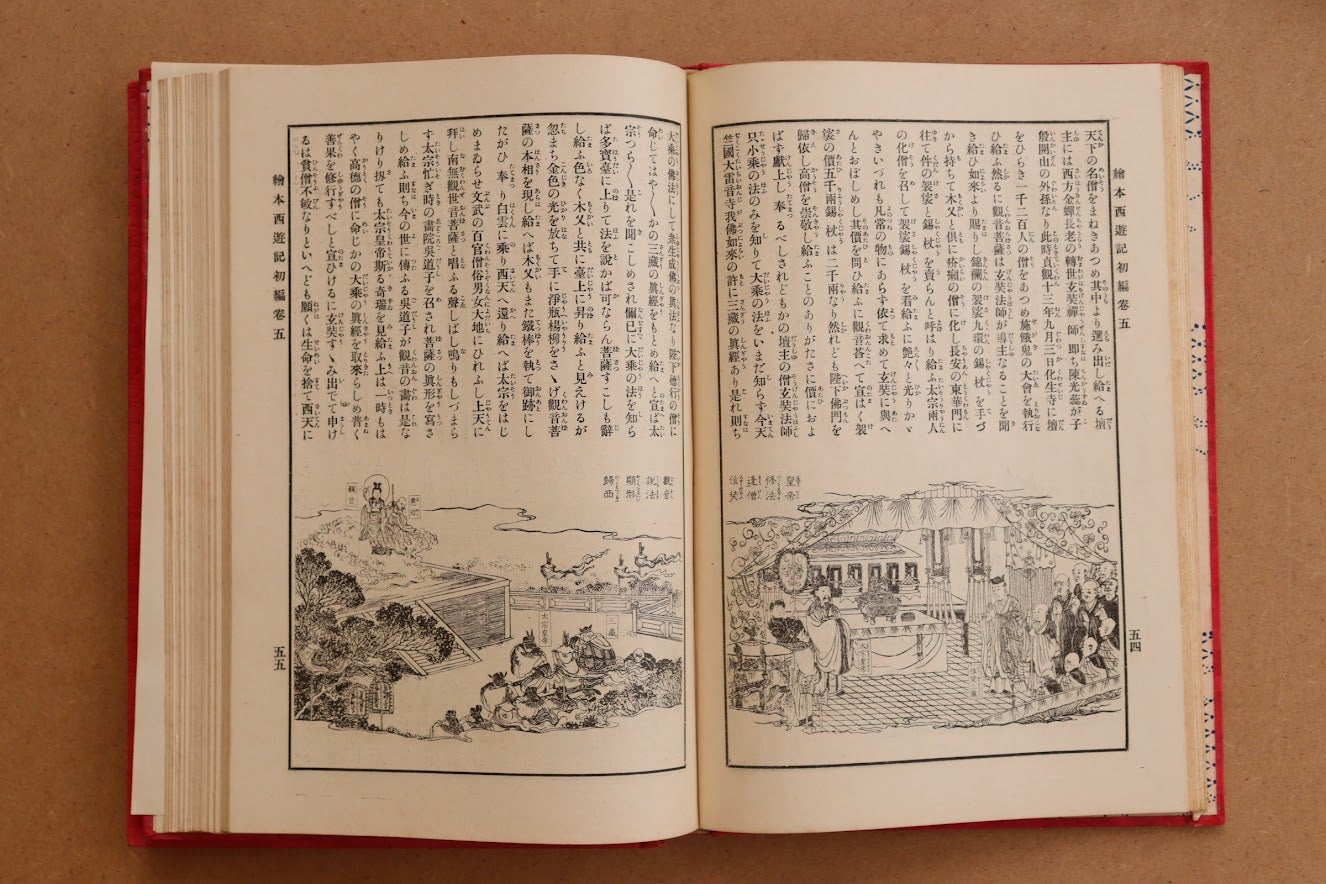 繪本西遊記初編卷五
五四
天下の名僧をまねきあつめ其中より選み出し給へる壇
主には西方金蟬長老の轉世玄奘禪師即ち陳光蕊が子
殷開山の外孫なり此時貞觀十三年九月三日化生寺に壇
をひらき一千二百人の僧をあつめ施餓鬼の大會を執行
ひ給ふ然るに觀音菩薩は玄奘法師が導主なることを聞
き給ひ如來より賜りし錦襴の袈裟九環の錫杖を手づ
から持ちて木叉と俱に疥癩の僧に化し長安の東華門に
往て件の袈裟と錫杖を賣らんと呼はり給ふ太宗兩人
の化僧を召して袈裟錫杖を看給ふに艷々と光りかゞ
やきいづれも凡常の物にあらず依て求めて玄奘に與へ
んとおぼしめし其價を問ひ給ふに觀音荅へて宣はく袈
裟の價五千兩錫杖は二千兩なり然れども陛下佛門を
歸依し高僧を崇敬し給ふことのありがたさに價におよ
ばず獻上し奉るべしされどもかの壇主の僧玄奘法師
只小乘の法のみを知りて大乘の法をいまだ知らず今天
竺國大雷音寺我佛如來の許に三藏の眞經あり是れ則ち
皇帝
修法
逢僧
玄奘
大乘の佛法にして衆生成佛の眞法なり陛下德行の僧に
命じてはや〳〵かの三藏の眞經をもとめ給へと宣ば太
宗つら〳〵是れを聞こしめされ儞已に大乘の法を知ら
ば多寶臺に上りて法を說かば可ならん菩薩すこしも辭
し給ふ色なく木叉と共に臺上に昇り給ふと見えけるが
忽まち金色の光を放ちて手に淨瓶楊柳をさゝげ觀音菩
薩の本相を現し給へば木叉もまた鐵棒を執て御跡にし
たがひ奉り白雲に乘り西天へ還り給へば太宗をはじ
めまゐらせ文武の百官僧俗男女大地にひれふし上天に
拜し南無觀世音菩薩と唱ふる聲しばし鳴りもしづまら
す太宗忙ぎ時の畫院吳道子を召され菩薩の眞形を寫さ
しめ給ふ則ち今の世に傳ふる吳道子が觀音の畫は是な
りけり扨ても太宗皇帝斯る奇瑞を見給ふ上は一時もは
やく高德の僧に命じかの大乘の眞經を取來らしめ普く
善果を修行すべしと宣ひけるに玄奘すゝみ出でて申け
るは貧僧不敏なりといへども願くは生命を捨て西天に
觀音
說法
顯形
歸西
觀音
太宗皇帝
三藏
繪本西遊記初編卷五
五五